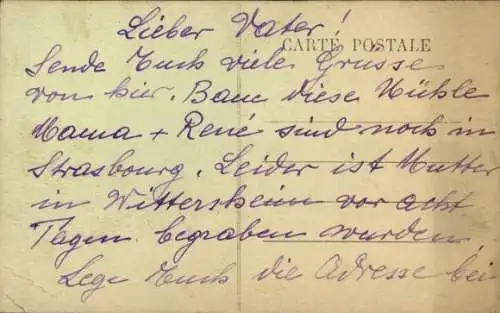 Lieber Vater!
CARTE POSTALE
Sende Euch viele Grüsse
von hier. Baue diese Mühle
Mama + René sind noch in
Strasbourg. Leider ist Mutter
in Wittersheim vor acht
Tagen begraben wurden,
Lege Euch die Adresse bei